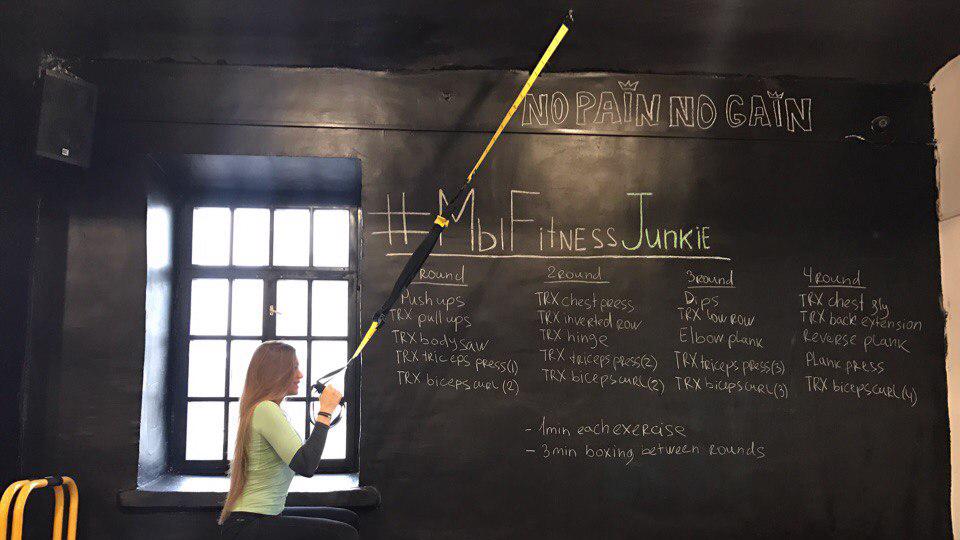 NO PAÏN NO GAÏN
#МыFitnessJunkie
round
Push ups
TRX pull ups
TRX body saw
TRX triceps press(1)
TRX biceps curl (2)
2 round
TRX chest press
TRX inverted row
TRX hinge
TRX triceps press(2)
TRX biceps curl(2)
3 round
Dips
TRX low row
Elbow plank
TRX triceps press(3)
TRX biceps curl(3)
4 round
TRX chest fly
TRX back extension
Reverse plank
Plank press
TRX biceps curl(4)
- 1min each exercise
- 3min boxing between rounds